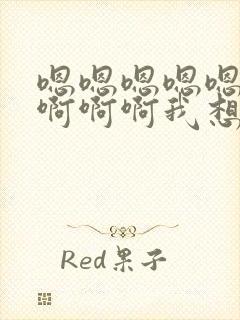 嗯嗯嗯嗯嗯
啊啊啊我想
Red果子